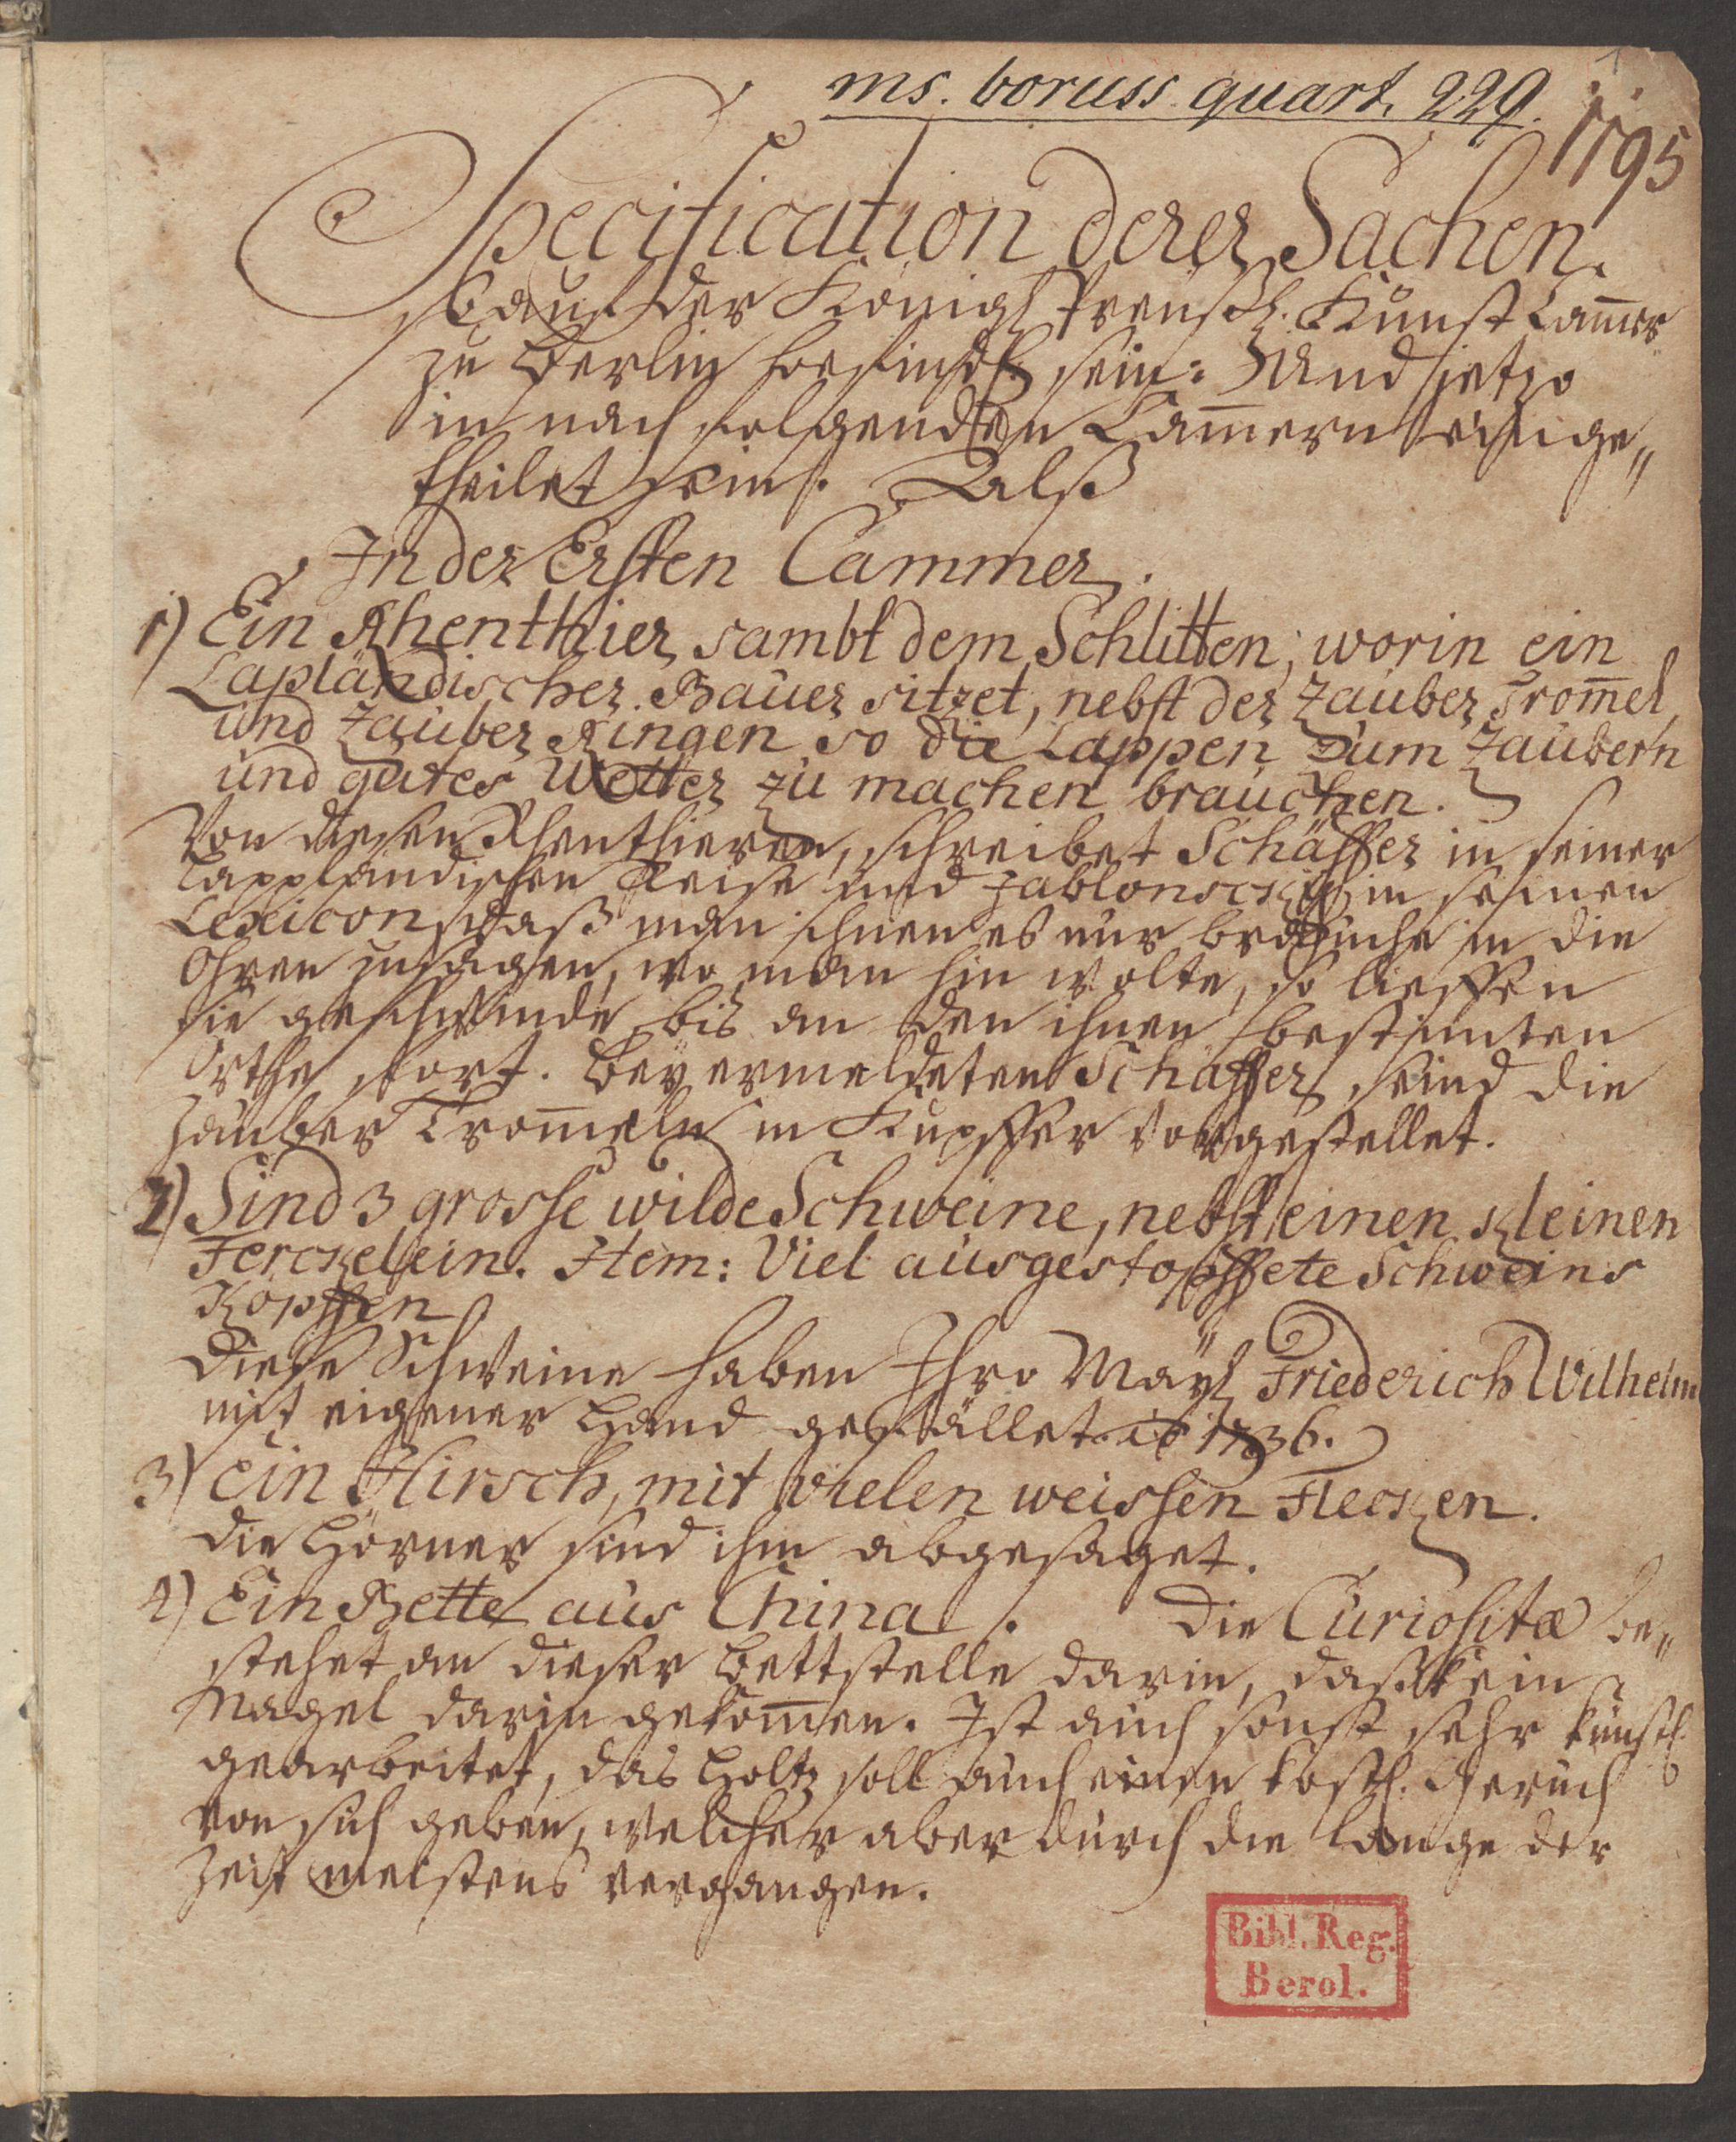 ms. boruss. quart. 229.
1
1795
Specification derer Sachen.
so auf der Königl Preußl. Kunst Cam̅er
zu Berlin befindl. sein: Und jetzo
in nach folgenden Cam̅ern einge„
theilet sein. Alß
In der Ersten Cammer.
1) Ein Rhenthier sambt dem Schlitten, worin ein
Lapländischer Bauer sitzet, nebst der Zauber Trom̅el,
und Zauber Ringen so die Lappen zum Zaubern
und gutes Wetter zu machen brauchen.
Von diesen Rhenthieren, schreibet Schäffer in seiner
Lappländischen Reise und Jablonscky in seinen
Lexicon, daß man ihnen es nur brauche in die
Ohren zusagen, wo man hin wolte, so lieffen
sie geschwinde bis an den ihnen bestimten
Orthe fort. Bey ermeldeten Schäffer seind die
Zauber Trom̅eln in Kupffer vorgestellet.
2) Sind 3 grosse wilde Schweine, nebst einen kleinen
Ferckelein. Item: Viel ausgestopffete Schweins
Köpffen
Diese Schweine haben Ihro Mayl Friederich Wilhelm
mit eigener Hand gefället. ao 1736.
3) Ein Hirsch, mit vielen weissen Flecken.
Die Hörner sind ihm abgesaget.
4) Ein Bette aus China. Die Curiositæ be„
stehet an dieser Bettstelle darin, daß kein
Nagel darin gekom̅en. Ist auch sonst sehr künstl.
gearbeitet, das Holtz soll auch einen köstl. Geruch
von sich geben, welcher aber durch die länge der
Zeit meistens vergangen.
Bibl. Reg.
Berol.